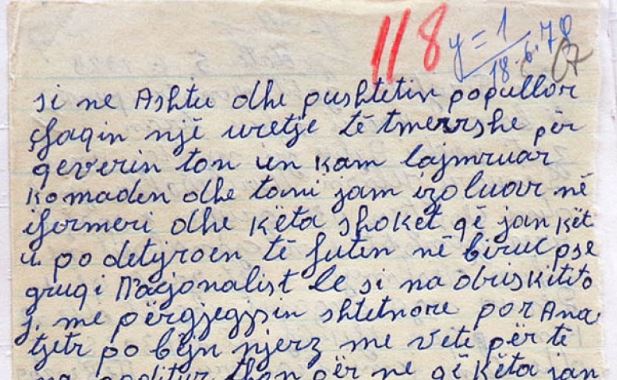 118 y=1 18.6.79 07
si ne Ashtu dhe pushtetin popullor
çfaqin një uretje të tmerrshe për
qeverin ton un kam lajmruar
komaden dhe tani jam izoluar në
ifermeri dhe këta shoket që jan kët
u po detyroen të futen në biruc pse
grupi Nacjonalist le si na
me përgjegjsin shtetnore por Ana
tjetr po bëjn njerz me vete për të
na goditur than për ne që këta jan